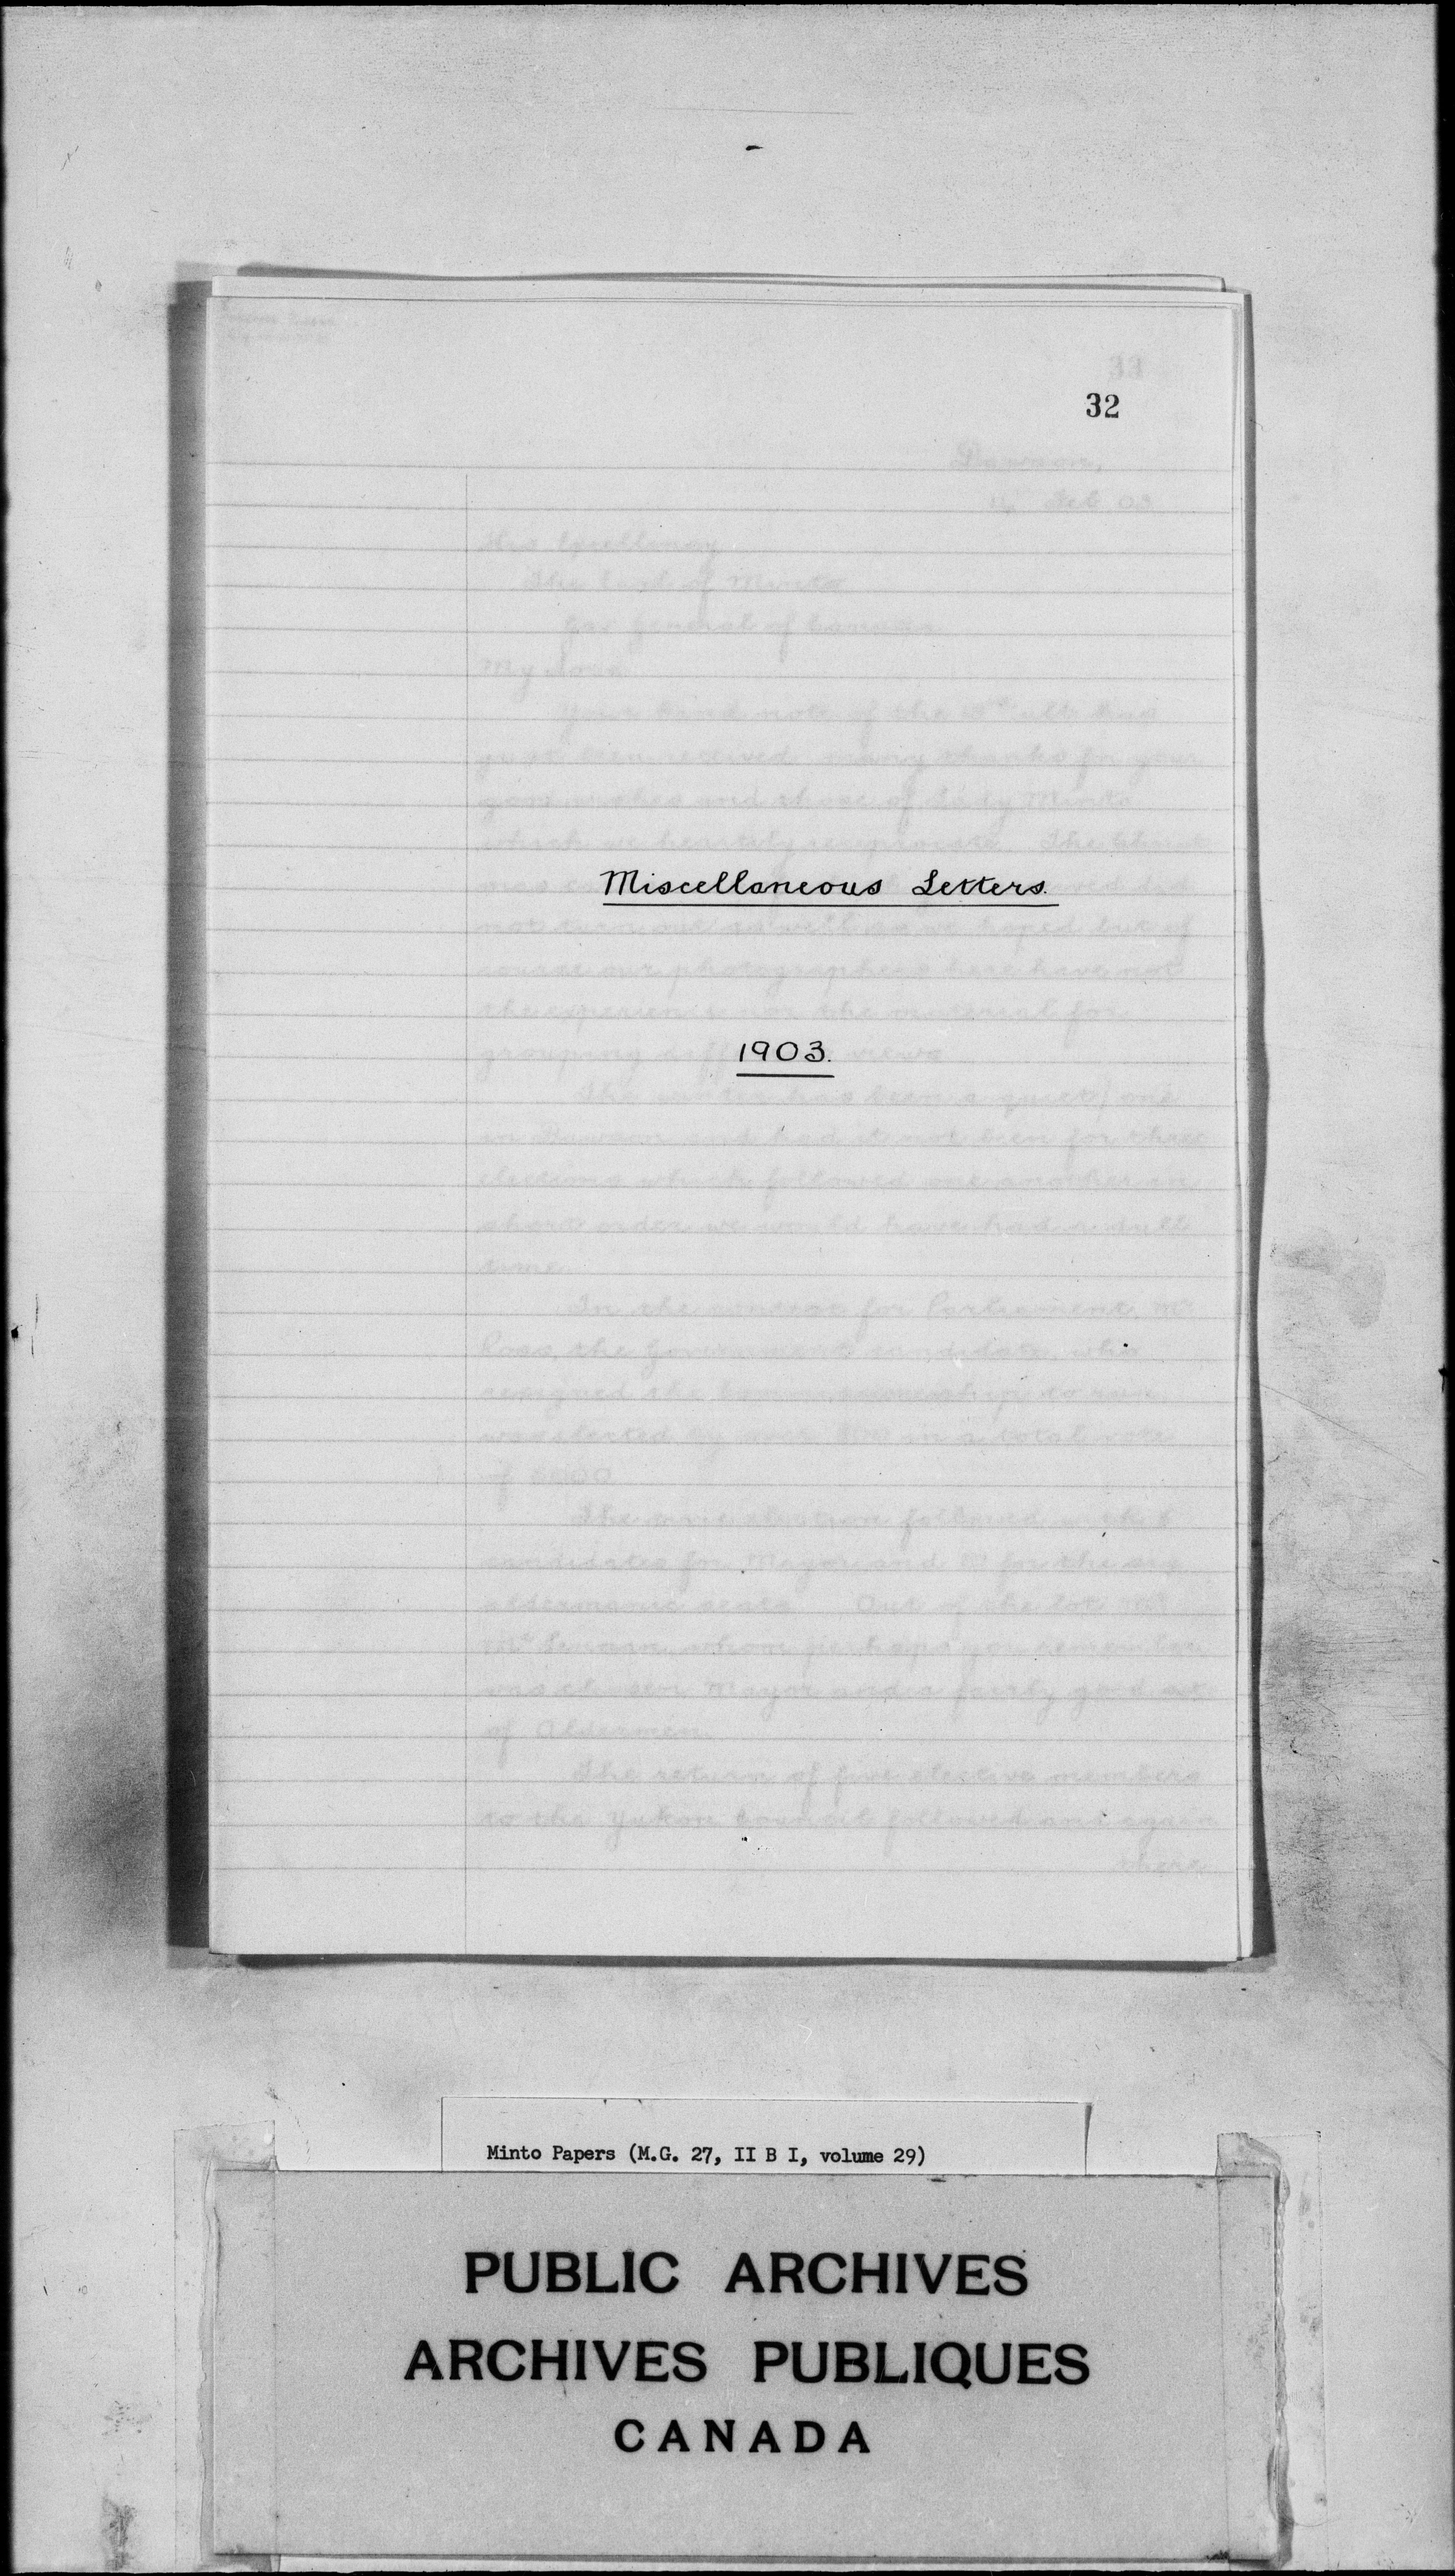 33
32
Dawson,
Feb 03
His Excellency
The Earl of Minto
Gov General of Canada
My Lord
Your kind note of the ult has
just been received many thanks for your
good wishes and those of Lady Minto
which we heartily reciprocate. The
Miscellaneous Letters.
not turn out as well as we hoped but of
course our photographers here have not
the experience nor the material for
grouping views
1903.
The winter has been a quiet one
in Dawson and had it not been for three
elections which followed one another in
short order we would have had a dull
time.
In the contest for Parliament, Mr
Ross, the Government candidate, who
resigned the Commissionership to run,
was elected by over in a total vote
of
The election followed with
candidates for Mayor and for the six
aldermanic seats Out of the lot Mr
whom perhaps you remember
was chosen Mayor and a fairly good set
of Aldermen.
The return of five elective members
to the Yukon Council followed and again
there
Minto Papers (M.G. 27, II B I, volume 29)
PUBLIC ARCHIVES
ARCHIVES PUBLIQUES
CANADA